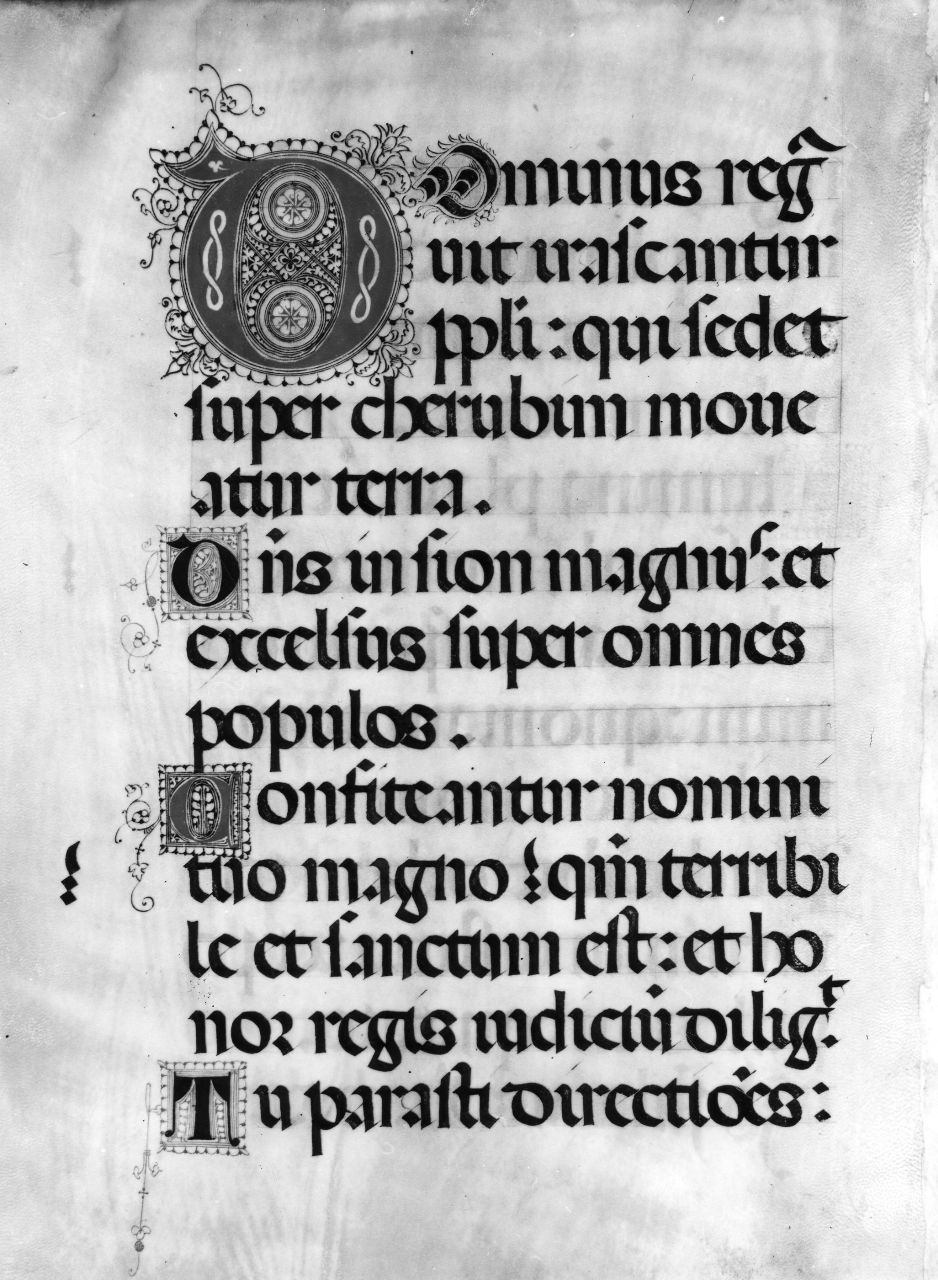 DOminus reg̃
uit irascantur
ppli : qui sedet
super cherubim moue
atur terra .
Dn̄s in sion magnus : et
excelsus super omnes
populos .
Confiteantur nomini
tuo magno : qm̄ terribi
le et sanctum est : et ho
nor regis iudiciū diligᵗ.
Tu parasti directiōes :